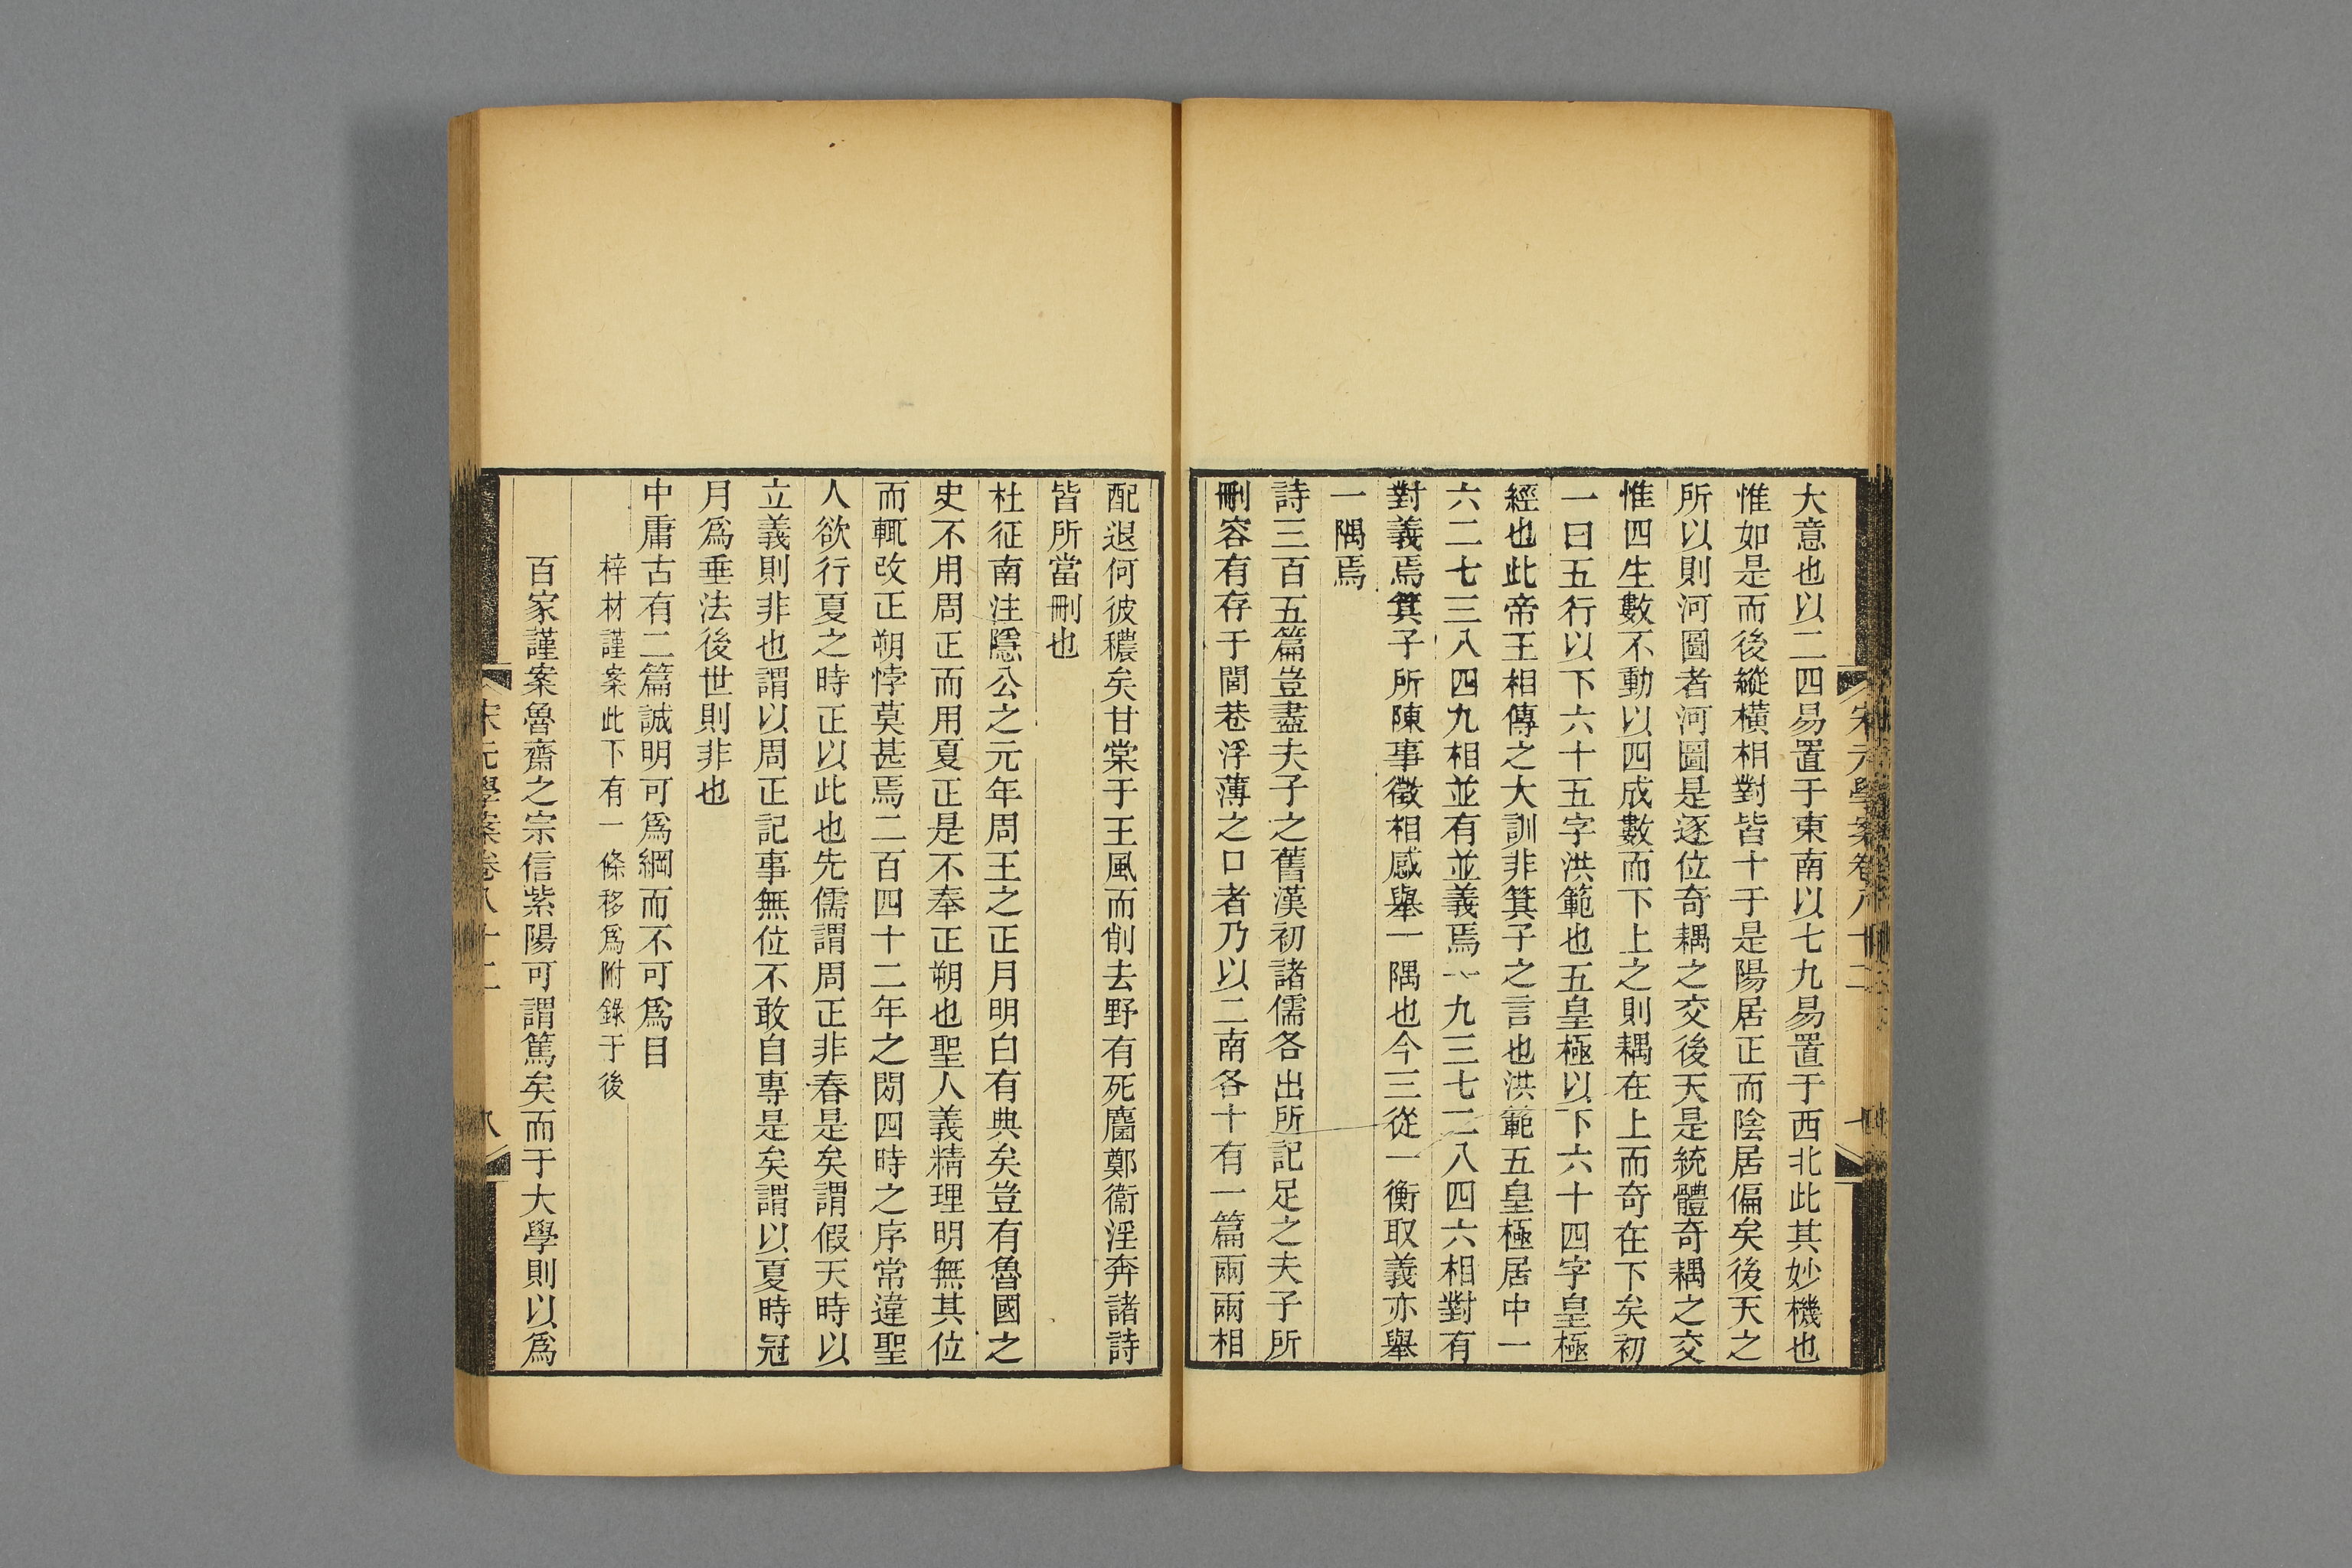 大意也以二四易置于東南以七九易置于西北此其妙機也
惟如是而後縱橫相對皆十于是陽居正而陰居偏矣後天之
所以則河圖者河圖是逐位奇耦之交後天是統體奇耦之交
惟四生數不動以四成數而下上之則耦在上而奇在下矣初
一曰五行以下六十五字洪範也五皇極以下六十四字皇極
經也此帝王相傳之大訓非箕子之言也洪範五皇極居中一
六二七三八四九相並有並義焉一九三七二八四六相對有
對義焉箕子所陳事徵相感舉一隅也今三從一衡取義亦舉
一隅焉
詩三百五篇豈盡夫子之舊漢初諸儒各出所記足之夫子所
刪容有存于閭巷浮薄之口者乃以二南各十有一篇兩兩相
配退何彼穠矣甘棠于王風而削去野有死麕鄭衞淫奔諸詩
皆所當刪也
杜征南注隱公之元年周王之正月明白有典矣豈有魯國之
史不用周正而用夏正是不奉正朔也聖人義精理明無其位
而輒改正朔悖莫甚焉二百四十二年之閒四時之序常違聖
人欲行夏之時正以此也先儒謂周正非春是矣謂假天時以
立義則非也謂以周正記事無位不敢自專是矣謂以夏時冠
月爲垂法後世則非也
中庸古有二篇誠明可爲綱而不可爲目
梓材謹案此下有一條移爲附錄于後
百家謹案魯齋之宗信紫陽可謂篤矣而于大學則以爲
宋元學案卷八十二
八